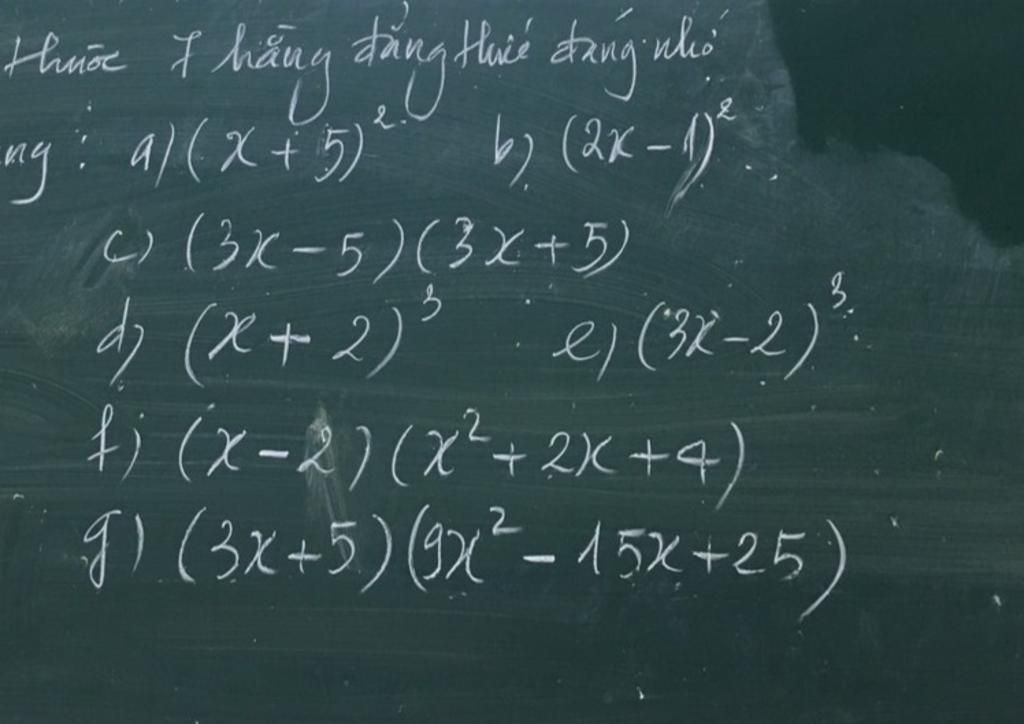 thuộc 7 hằng đẳng thức đáng nhớ
ng : a) (x + 5)² b) (2x - 1)²
c) (3x - 5)(3x + 5)
d) (x + 2)³ e) (3x - 2)³
f) (x - 2)(x² + 2x + 4)
g) (3x + 5)(9x² - 15x + 25)